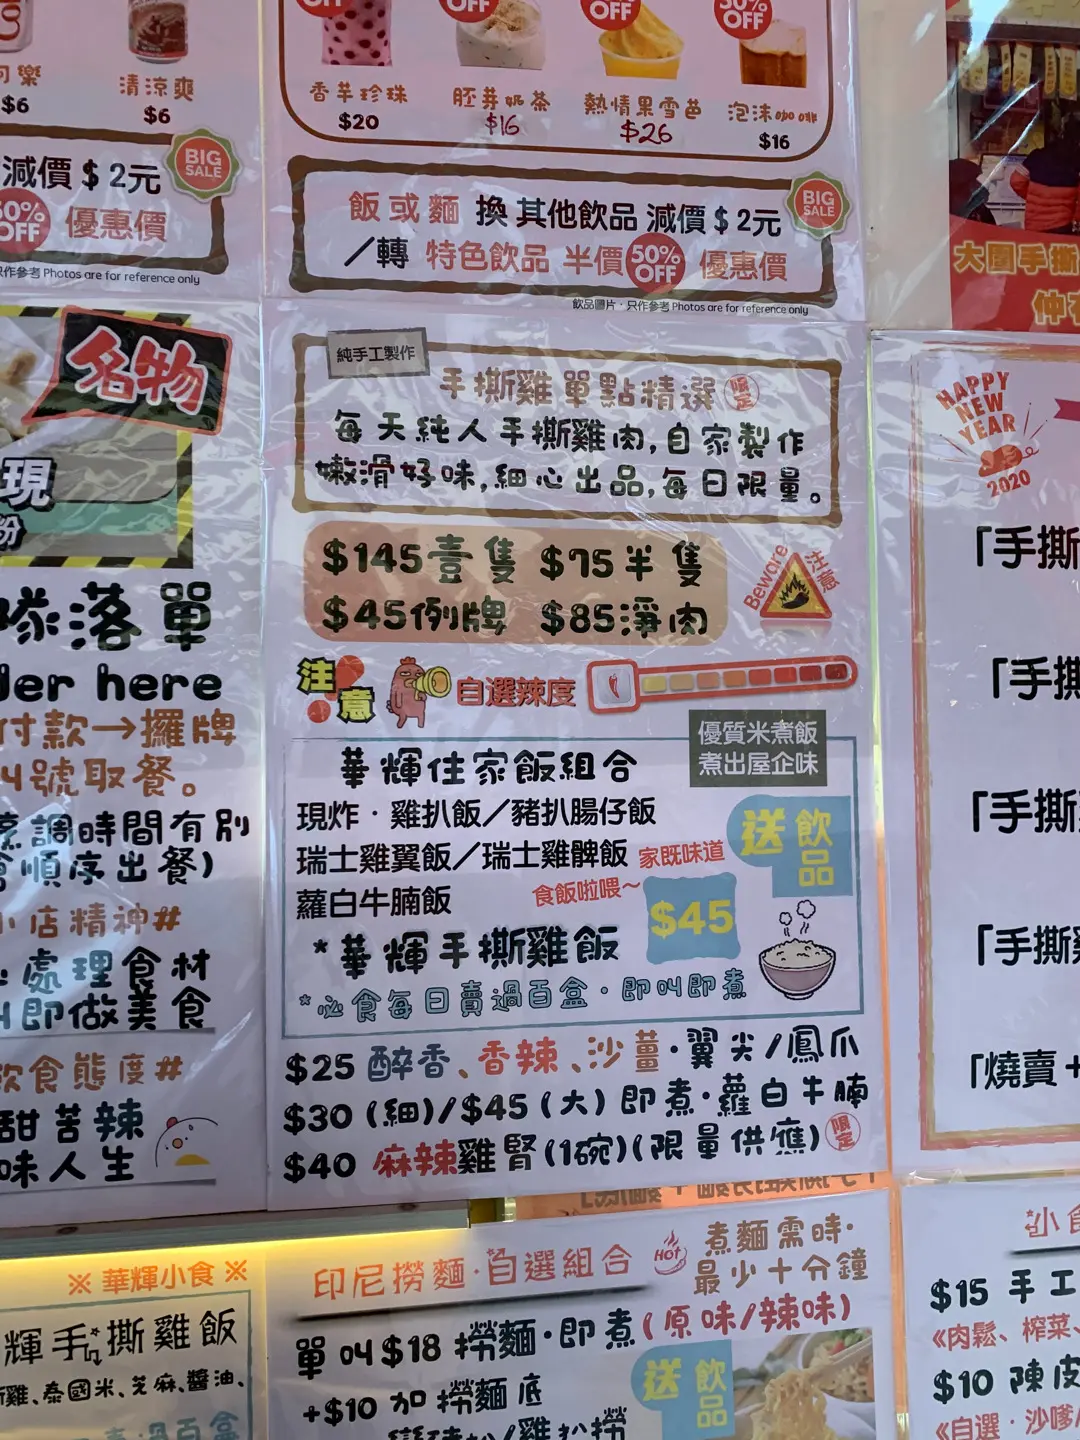 $6
清涼爽
$6
減價$2元
BIG SALE
50% OFF 優惠價
只作參考 Photos are for reference only
OFF
OFF
OFF
50% OFF
香芋珍珠
$20
胚芽奶茶
$16
熱情果雪芭
$26
泡沫咖啡
$16
飯或麵 換其他飲品 減價$2元
BIG SALE
/轉 特色飲品 半價 50% OFF 優惠價
飲品圖片·只作參考 Photos are for reference only
大圍手撕
名物
現
粉
落單
der here
付款→攞牌
號取餐。
調時間有別
順序出餐)
小店精神#
處理食材
即做美食
飲食態度#
甜苦辣
味人生
純手工製作
手撕雞單點精選 限定
每天純人手撕雞肉,自家製作
嫩滑好味,細心出品,每日限量。
$145壹隻 $75半隻
$45例牌 $85淨肉
Beware 注意
注意 自選辣度
優質米煮飯
煮出屋企味
華輝住家飯組合
現炸·雞扒飯/豬扒腸仔飯
瑞士雞翼飯/瑞士雞髀飯 家既味道
蘿白牛腩飯 食飯啦喂~
送飲品
$45
*華輝手撕雞飯
*必食每日賣過百盒·即叫即煮
$25 醉香、香辣、沙薑·翼尖/鳳爪
$30(細)/$45(大)即煮·蘿白牛腩
$40 麻辣雞腎(1碗)(限量供應) 限定
HAPPY NEW YEAR
2020
「手撕
「手撕
「手撕
「手撕雞
「燒賣+
※ 華輝小食 ※
輝手撕雞飯
雞、泰國米、芝麻、醬油、
過百盒
印尼撈麵·自選組合 Hot
煮麵需時·
最少十分鐘
單叫$18 撈麵·即煮(原味/辣味)
+$10 加 撈麵底
送飲品
小食
$15 手工
《肉鬆、榨菜、
$10 陳皮
《自選·沙嗲/